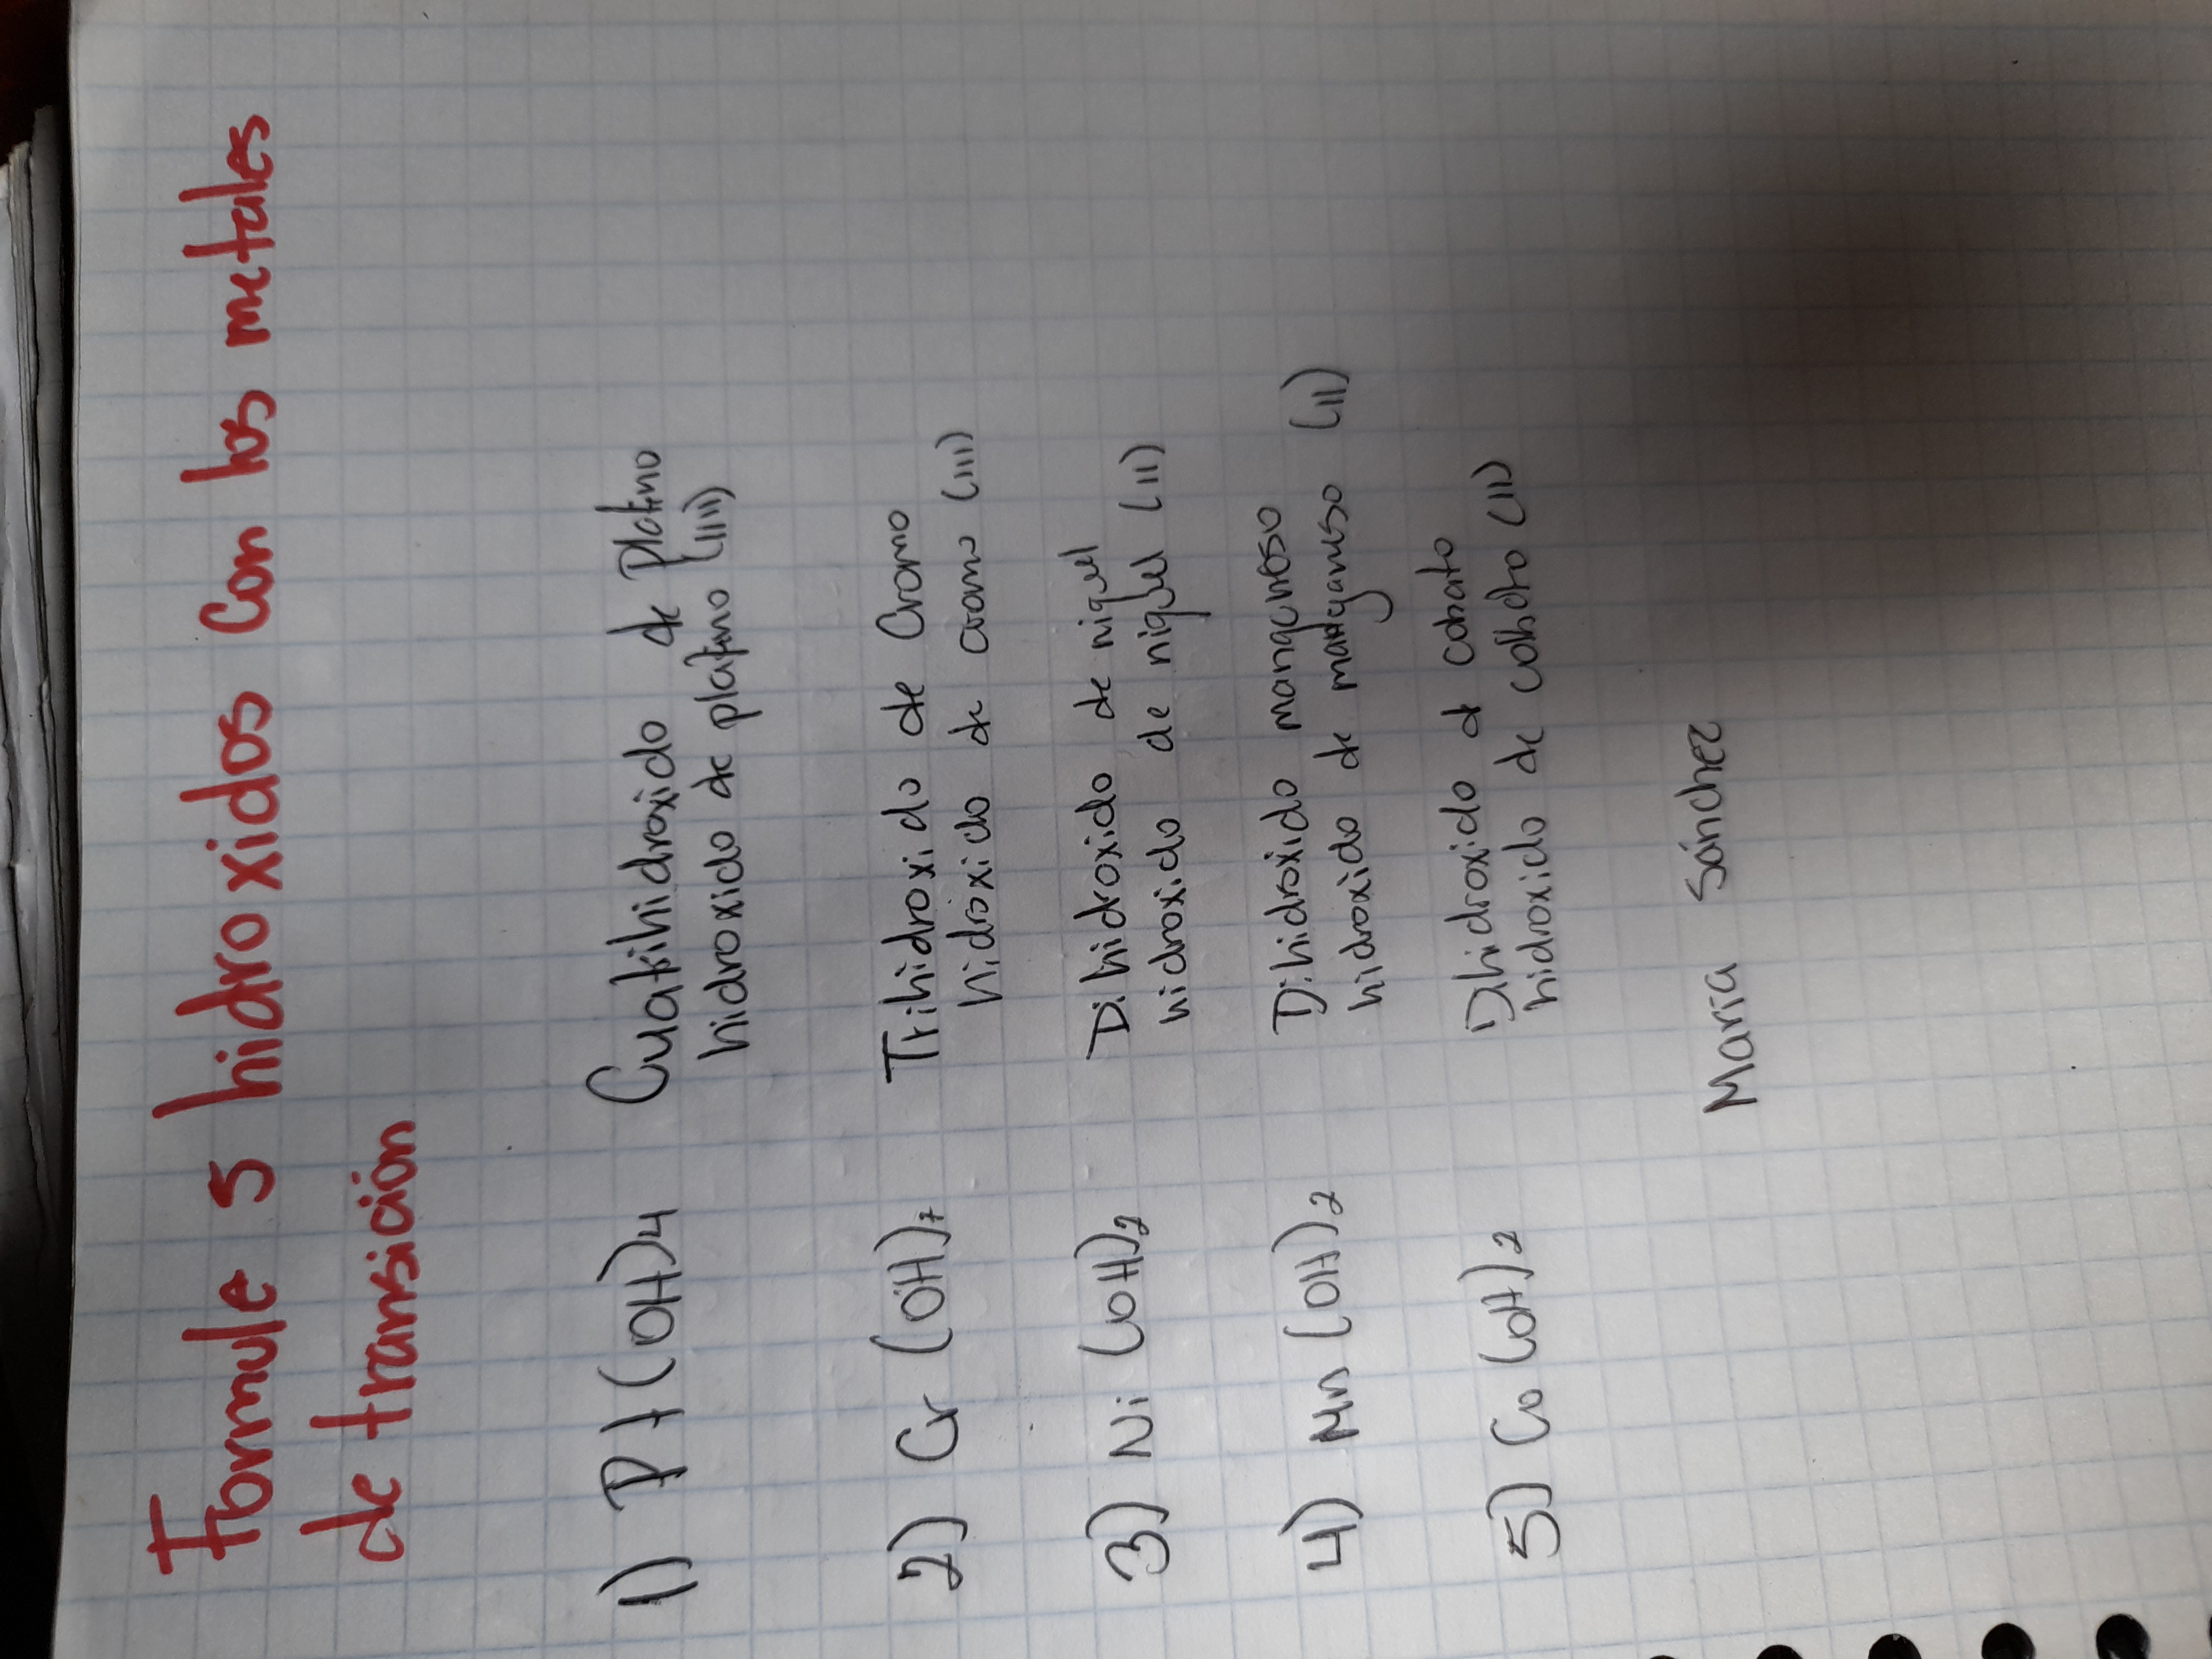 Formule 5 hidroxidos Con los metales
de transición
1) Pt (OH)4 Cuatrihidroxido de platino
hidroxido de platino (IIII)
2) Cr (OH)7 Trihidroxido de Cromo
hidroxido de cromo (III)
3) Ni (OH)2 Dihidroxido de niquel
hidroxido de niquel (II)
4) Mn (OH)2 Dihidroxido manganoso
hidroxido de manganeso (II)
5) Co (OH)2 Dihidroxido d cobato
hidroxido de cobalto (II)
Maria Sánchez